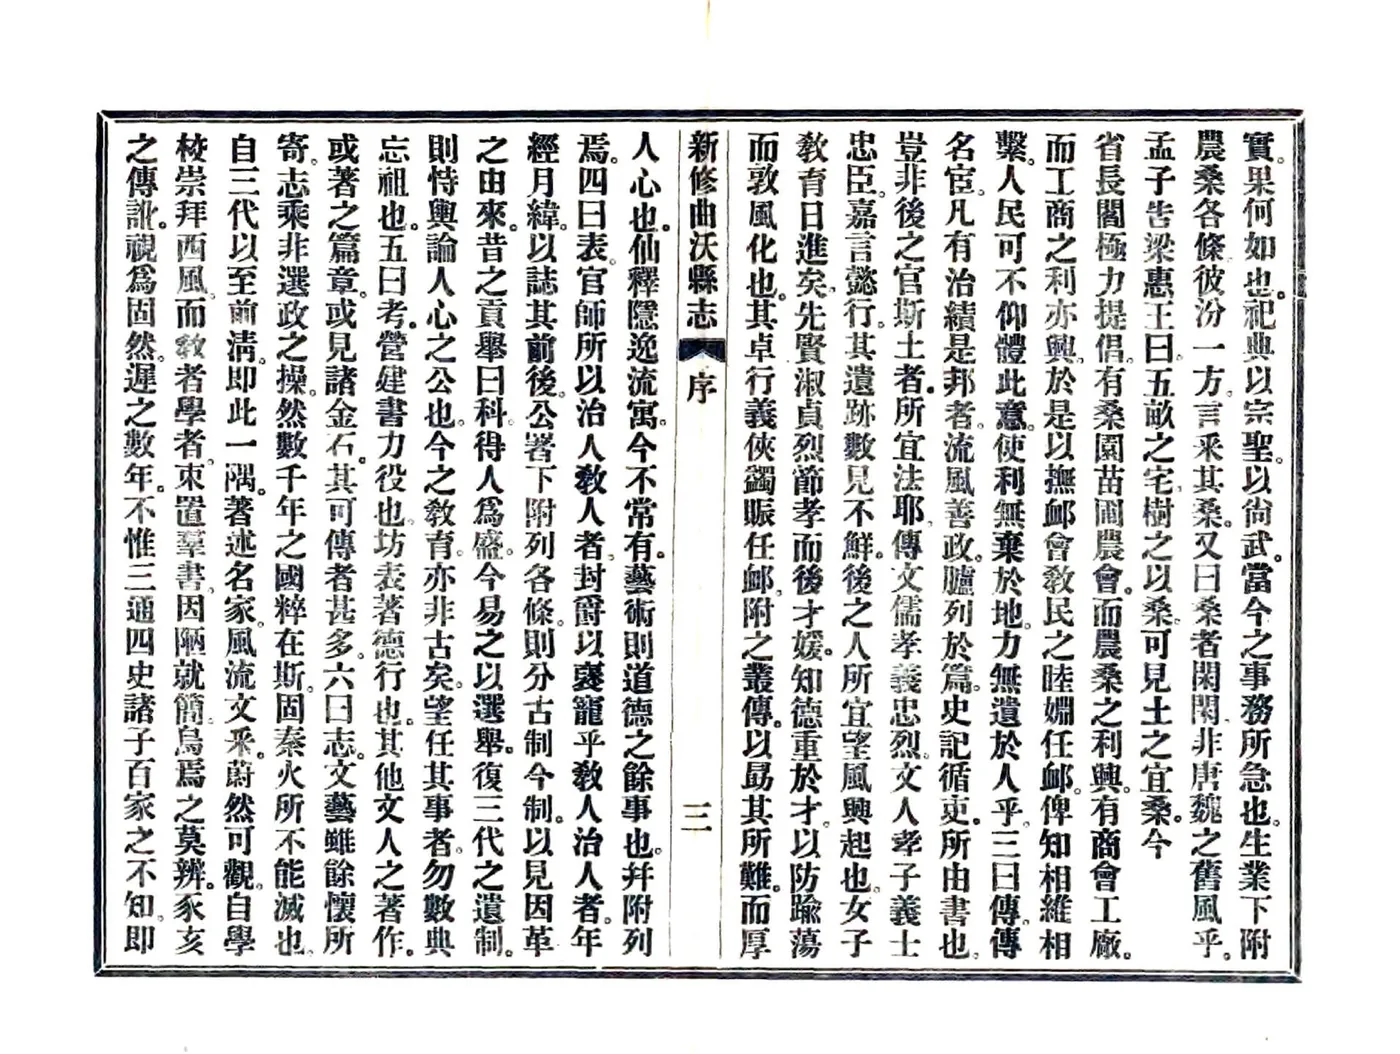 實。果何如也。祀典以宗聖。以尙武。當今之事務所急也。生業下附
農桑各條。彼汾一方。言釆其桑。又曰桑者閑閑。非唐魏之舊風乎。
孟子告梁惠王曰。五畝之宅。樹之以桑。可見土之宜桑。今
省長閻極力提倡。有桑園苗圃農會。而農桑之利興。有商會工廠。
而工商之利亦興。於是以撫卹會敎民之睦婣任卹。俾知相維相
繫。人民可不仰體此意。使利無棄於地。力無遺於人乎。三曰傳。傳
名宦。凡有治績是邦者。流風善政。臚列於篇。史記循吏。所由書也。
豈非後之官斯土者。所宜法耶。傳文儒孝義忠烈。文人孝子義士
忠臣。嘉言懿行。其遺跡數見不鮮。後之人所宜望風興起也。女子
敎育日進矣。先賢淑貞烈節孝而後才媛。知德重於才。以防踰蕩
而敦風化也。其卓行義俠蠲賑任卹。附之叢傳。以勗其所難。而厚
新修曲沃縣志 序 三
人心也。仙釋隱逸流寓。今不常有。藝術則道德之餘事也。幷附列
焉。四曰表。官師所以治人敎人者。封爵以襃寵乎敎人治人者。年
經月緯。以誌其前後。公署下附列各條。則分古制今制。以見因革
之由來。昔之貢舉曰科。得人爲盛。今易之以選舉。復三代之遺制。
則恃輿論人心之公也。今之敎育。亦非古矣。望任其事者。勿數典
忘祖也。五曰考。營建書力役也。坊表著德行也。其他文人之著作。
或著之篇章。或見諸金石。其可傳者甚多。六曰志。文藝雖餘懷所
寄。志乘非選政之操。然數千年之國粹在斯。固秦火所不能滅也。
自三代以至前淸。卽此一隅。著述名家。風流文釆。蔚然可觀。自學
校崇拜西風。而敎者學者。束置羣書。因陋就簡。烏焉之莫辨。豕亥
之傳訛。視爲固然。遲之數年。不惟三通四史諸子百家之不知。卽